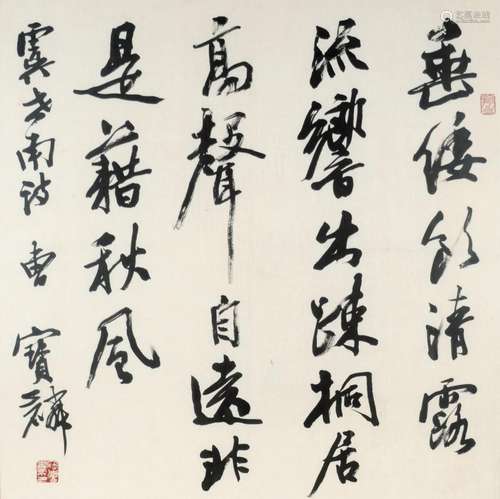 垂倭飲清露
流響出疎桐居
高聲自遠非
是藉秋風
虞世南詩 曹寶麟